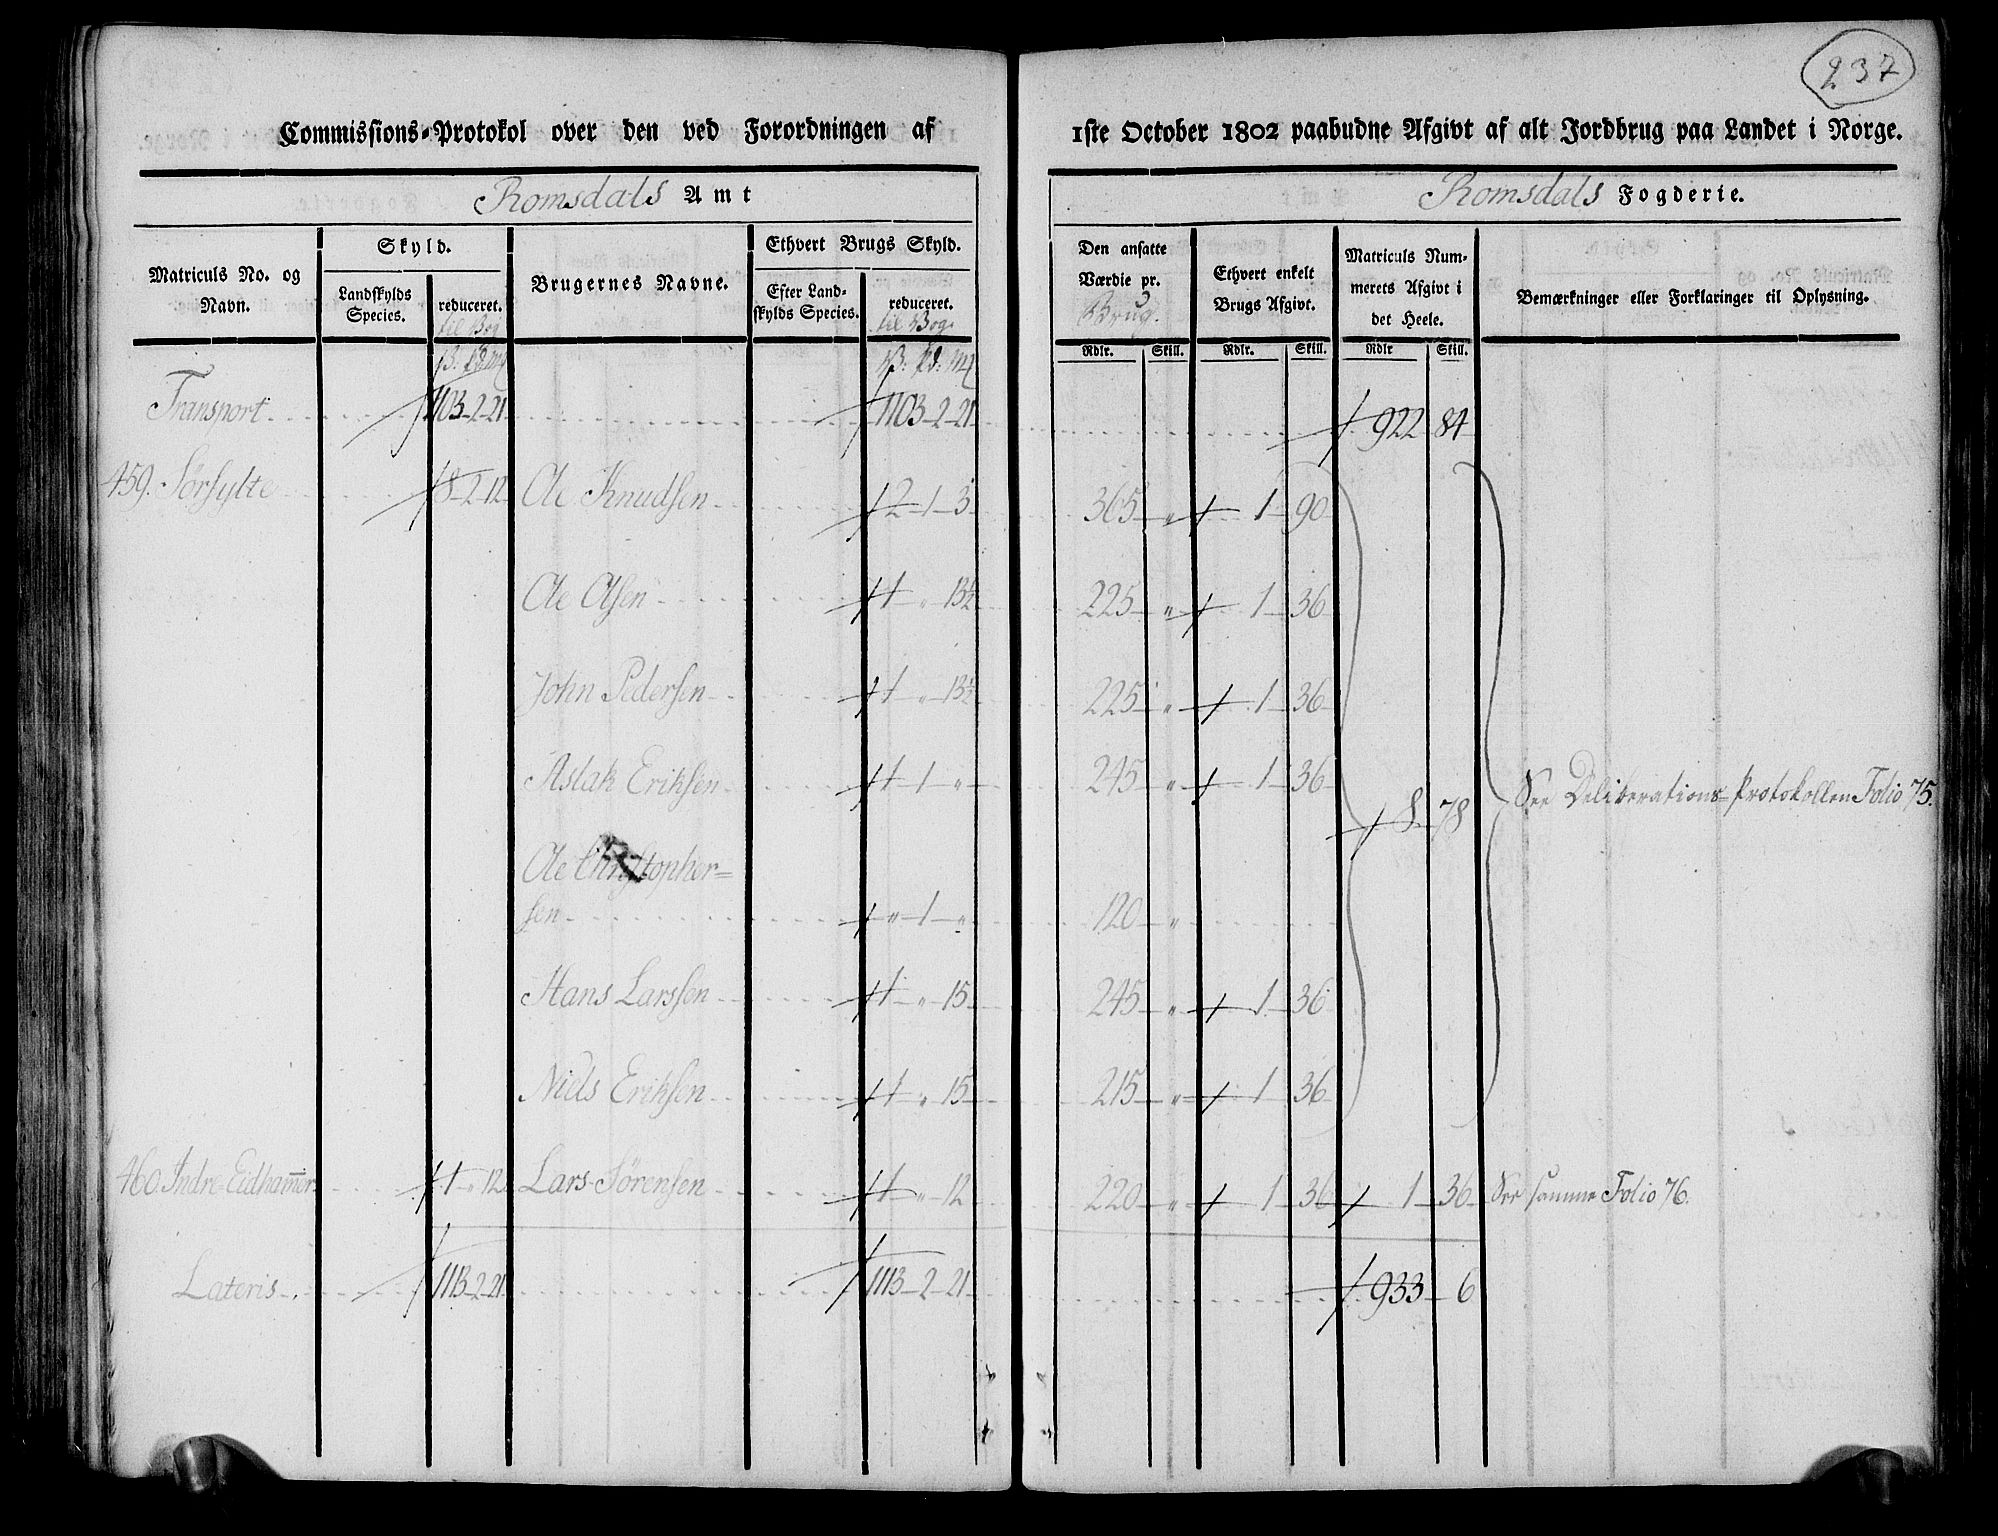 237
Commissions-Protokol over den ved Forordningen af 1ste October 1802 paabudne Afgivt af alt Jordbrug paa Landet i Norge.
Romsdals Amt
Romsdals Fogderie.
Matriculs No. og Navn.
Skyld.
Landskylds Species.
reduceret.
til Bog
Brugernes Navne.
Ethvert Brugs Skyld.
Efter Landskylds Species.
reduceret.
til Bog:
Den ansatte Værdie pr.
Brug.
Ethvert enkelt Brugs Afgivt.
Matriculs Nummerets Afgivt i det Heele.
Bemærkninger eller Forklaringer til Oplysning.
Rdlr. Skill. Rdlr. Skill. Rdlr Skill.
Transport 1103-2-21 1103-2-21 922 84
459. Sørsylte 8-2-12 Ole Knudsen 2-1-3 365 „ 1-90
Ole Olsen 1-„-13½ 225 „ 1-36
John Pedersen 1-„-13½ 225 „ 1-36
Aslak Eriksen 1-1-„ 245 „ 1-36
8-78 See Deliberations-Protokollen Folio 75.
Ole Christopher=
sen „-1-„ 120 „
Hans Larssen 1-„-15 245 „ 1-36
Niels Eriksen 1-„-15 215 „ 1-36
460. Indre-Eidhammer 1-„-12 Lars Sørensen 1-„-12 220 „ 1-36 1-36 See samme Folio 76.
Lateris 1113-2-21 1113-2-21 933-6